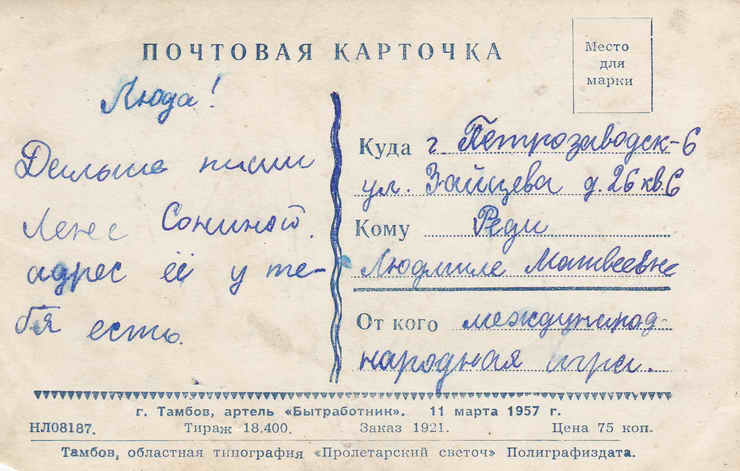 ПОЧТОВАЯ КАРТОЧКА
Место
для
марки
Люда!
Дальше пиши
Лене Сониной.
адрес её у те-
бя есть.
Куда г. Петрозаводск-6
ул. Зайцева д. 26 кв. 6
Кому Реди
Людмиле Матвеевне
От кого международ-
народная игра.
г. Тамбов, артель «Бытработник». 11 марта 1957 г.
НЛ08187. Тираж 18.400. Заказ 1921. Цена 75 коп.
Тамбов, областная типография «Пролетарский светоч» Полиграфиздата.